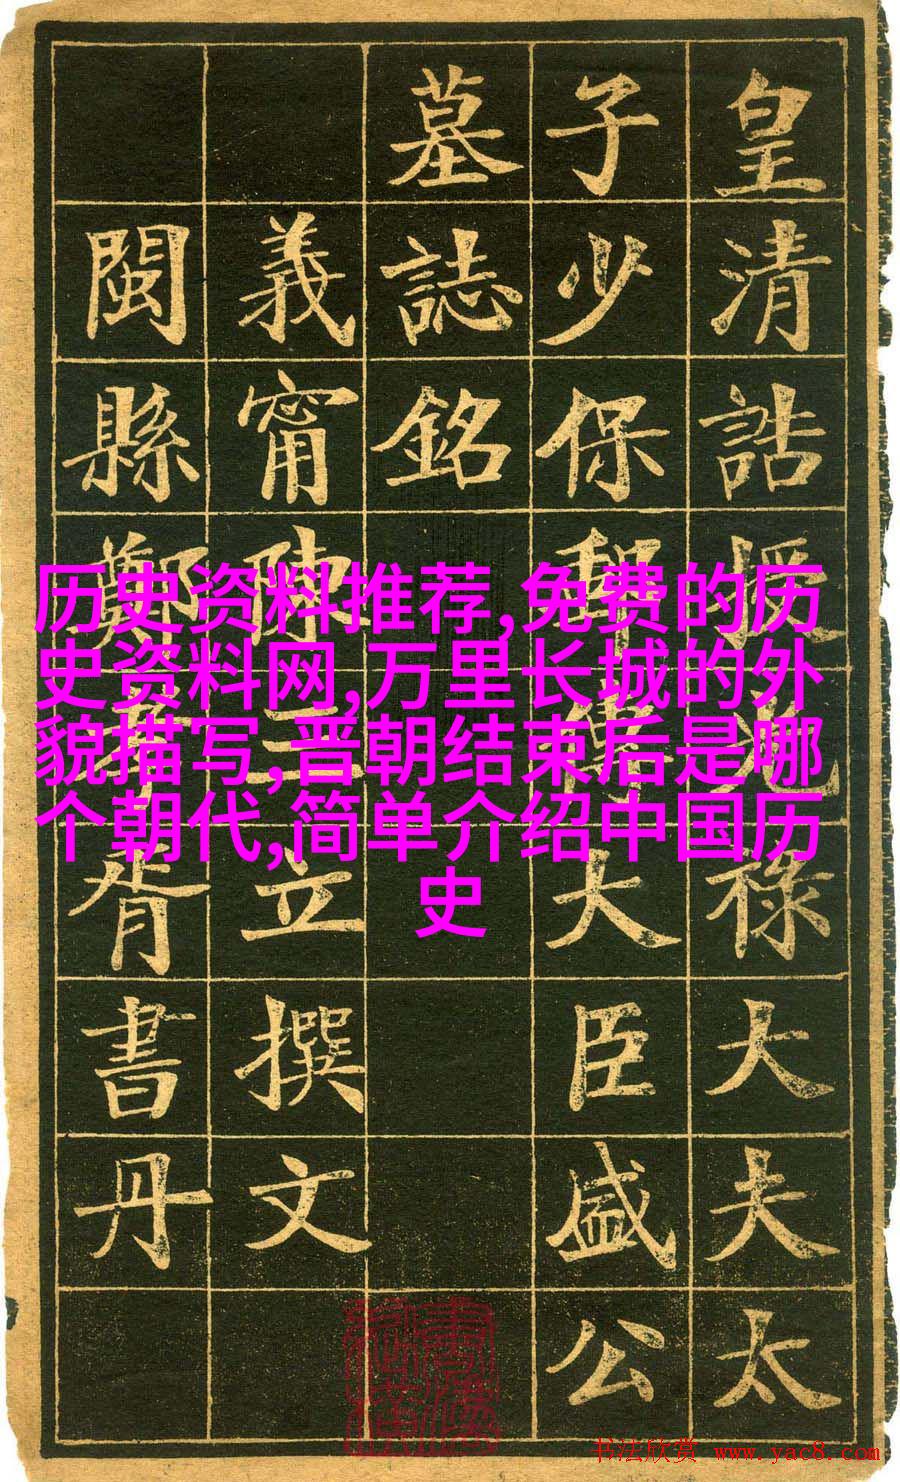 皇清誥授光祿大夫太
子少保郵傳大臣盛公
墓誌銘
義甯陳三立撰文
閩縣鄭孝胥書丹
历史资料推荐,免费的历
史资料网,万里长城的外
貌描写,晋朝结束后是哪
个朝代,简单介绍中国历
史
书法欣赏 www.yac8.com